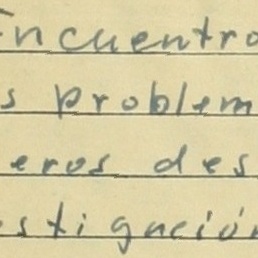 Encuentro
s problem
eros des
estigación